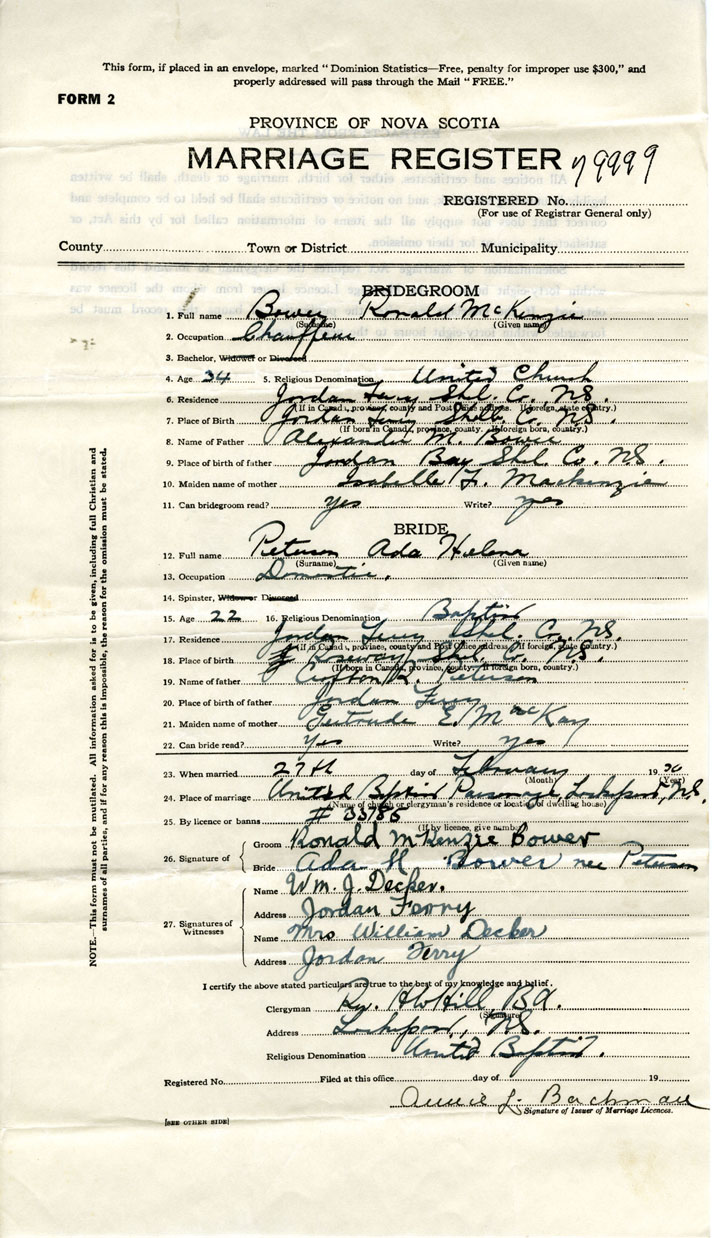 This form, if placed in an envelope, marked "Dominion Statistics—Free, penalty for improper use $300," and
properly addressed will pass through the Mail "FREE."
FORM 2
PROVINCE OF NOVA SCOTIA
MARRIAGE REGISTER 79999
REGISTERED No.
(For use of Registrar General only)
County Town or District Municipality
BRIDEGROOM
1. Full name Bower Ronald McKenzie
(Surname) (Given name)
2. Occupation Chauffeur
3. Bachelor, Widower or Divorced
4. Age 34 5. Religious Denomination United Church
6. Residence Jordan Ferry Shel. Co. N.S.
(If in Canada, province, county and Post Office address. If foreign, state country.)
7. Place of Birth Jordan Ferry Shel. Co. N.S.
(If born in Canada, province, county. If foreign born, country.)
8. Name of Father Alexander M. Bower
9. Place of birth of father Jordan Bay Shel. Co. N.S.
10. Maiden name of mother Isabelle F. Mackenzie
11. Can bridegroom read? yes Write? yes
BRIDE
12. Full name Peterson Ada Helena
(Surname) (Given name)
13. Occupation Domestic.
14. Spinster, Widow or Divorced
15. Age 22 16. Religious Denomination Baptist
17. Residence Jordan Ferry Shel. Co. N.S.
(If in Canada, province, county and Post Office address. If foreign, state country.)
18. Place of birth Roseway Shel. Co. N.S.
(If born in Canada, province, county. If foreign born, country.)
19. Name of father Crofton R. Peterson
20. Place of birth of father Jordan Ferry
21. Maiden name of mother Gertrude E. MacKay
22. Can bride read? Yes Write? yes
23. When married 27th day of February 19
(Month) (Year)
24. Place of marriage United Baptist Parsonage, Lockeport, N.S.
(Name of church or clergyman's residence or location of dwelling house)
25. By licence or banns # 35785
(If by licence, give number)
26. Signature of Groom Ronald McKenzie Bower
Bride Ada H. Bower nee Peterson
27. Signatures of Witnesses Name Wm. J. Decker.
Address Jordan Ferry
Name Mrs William Decker
Address Jordan Ferry
I certify the above stated particulars are true to the best of my knowledge and belief.
Clergyman Rev. H W Hill, B.A.
(Signature)
Address Lockeport, N.S.
Religious Denomination United Baptist.
Registered No. Filed at this office day of 19
Annie L. Bachman
Signature of Issuer of Marriage Licences.
[SEE OTHER SIDE]
NOTE.—This form must not be mutilated. All information asked for is to be given, including full Christian and
surnames of all parties, and if for any reason this is impossible, the reason for the omission must be stated.